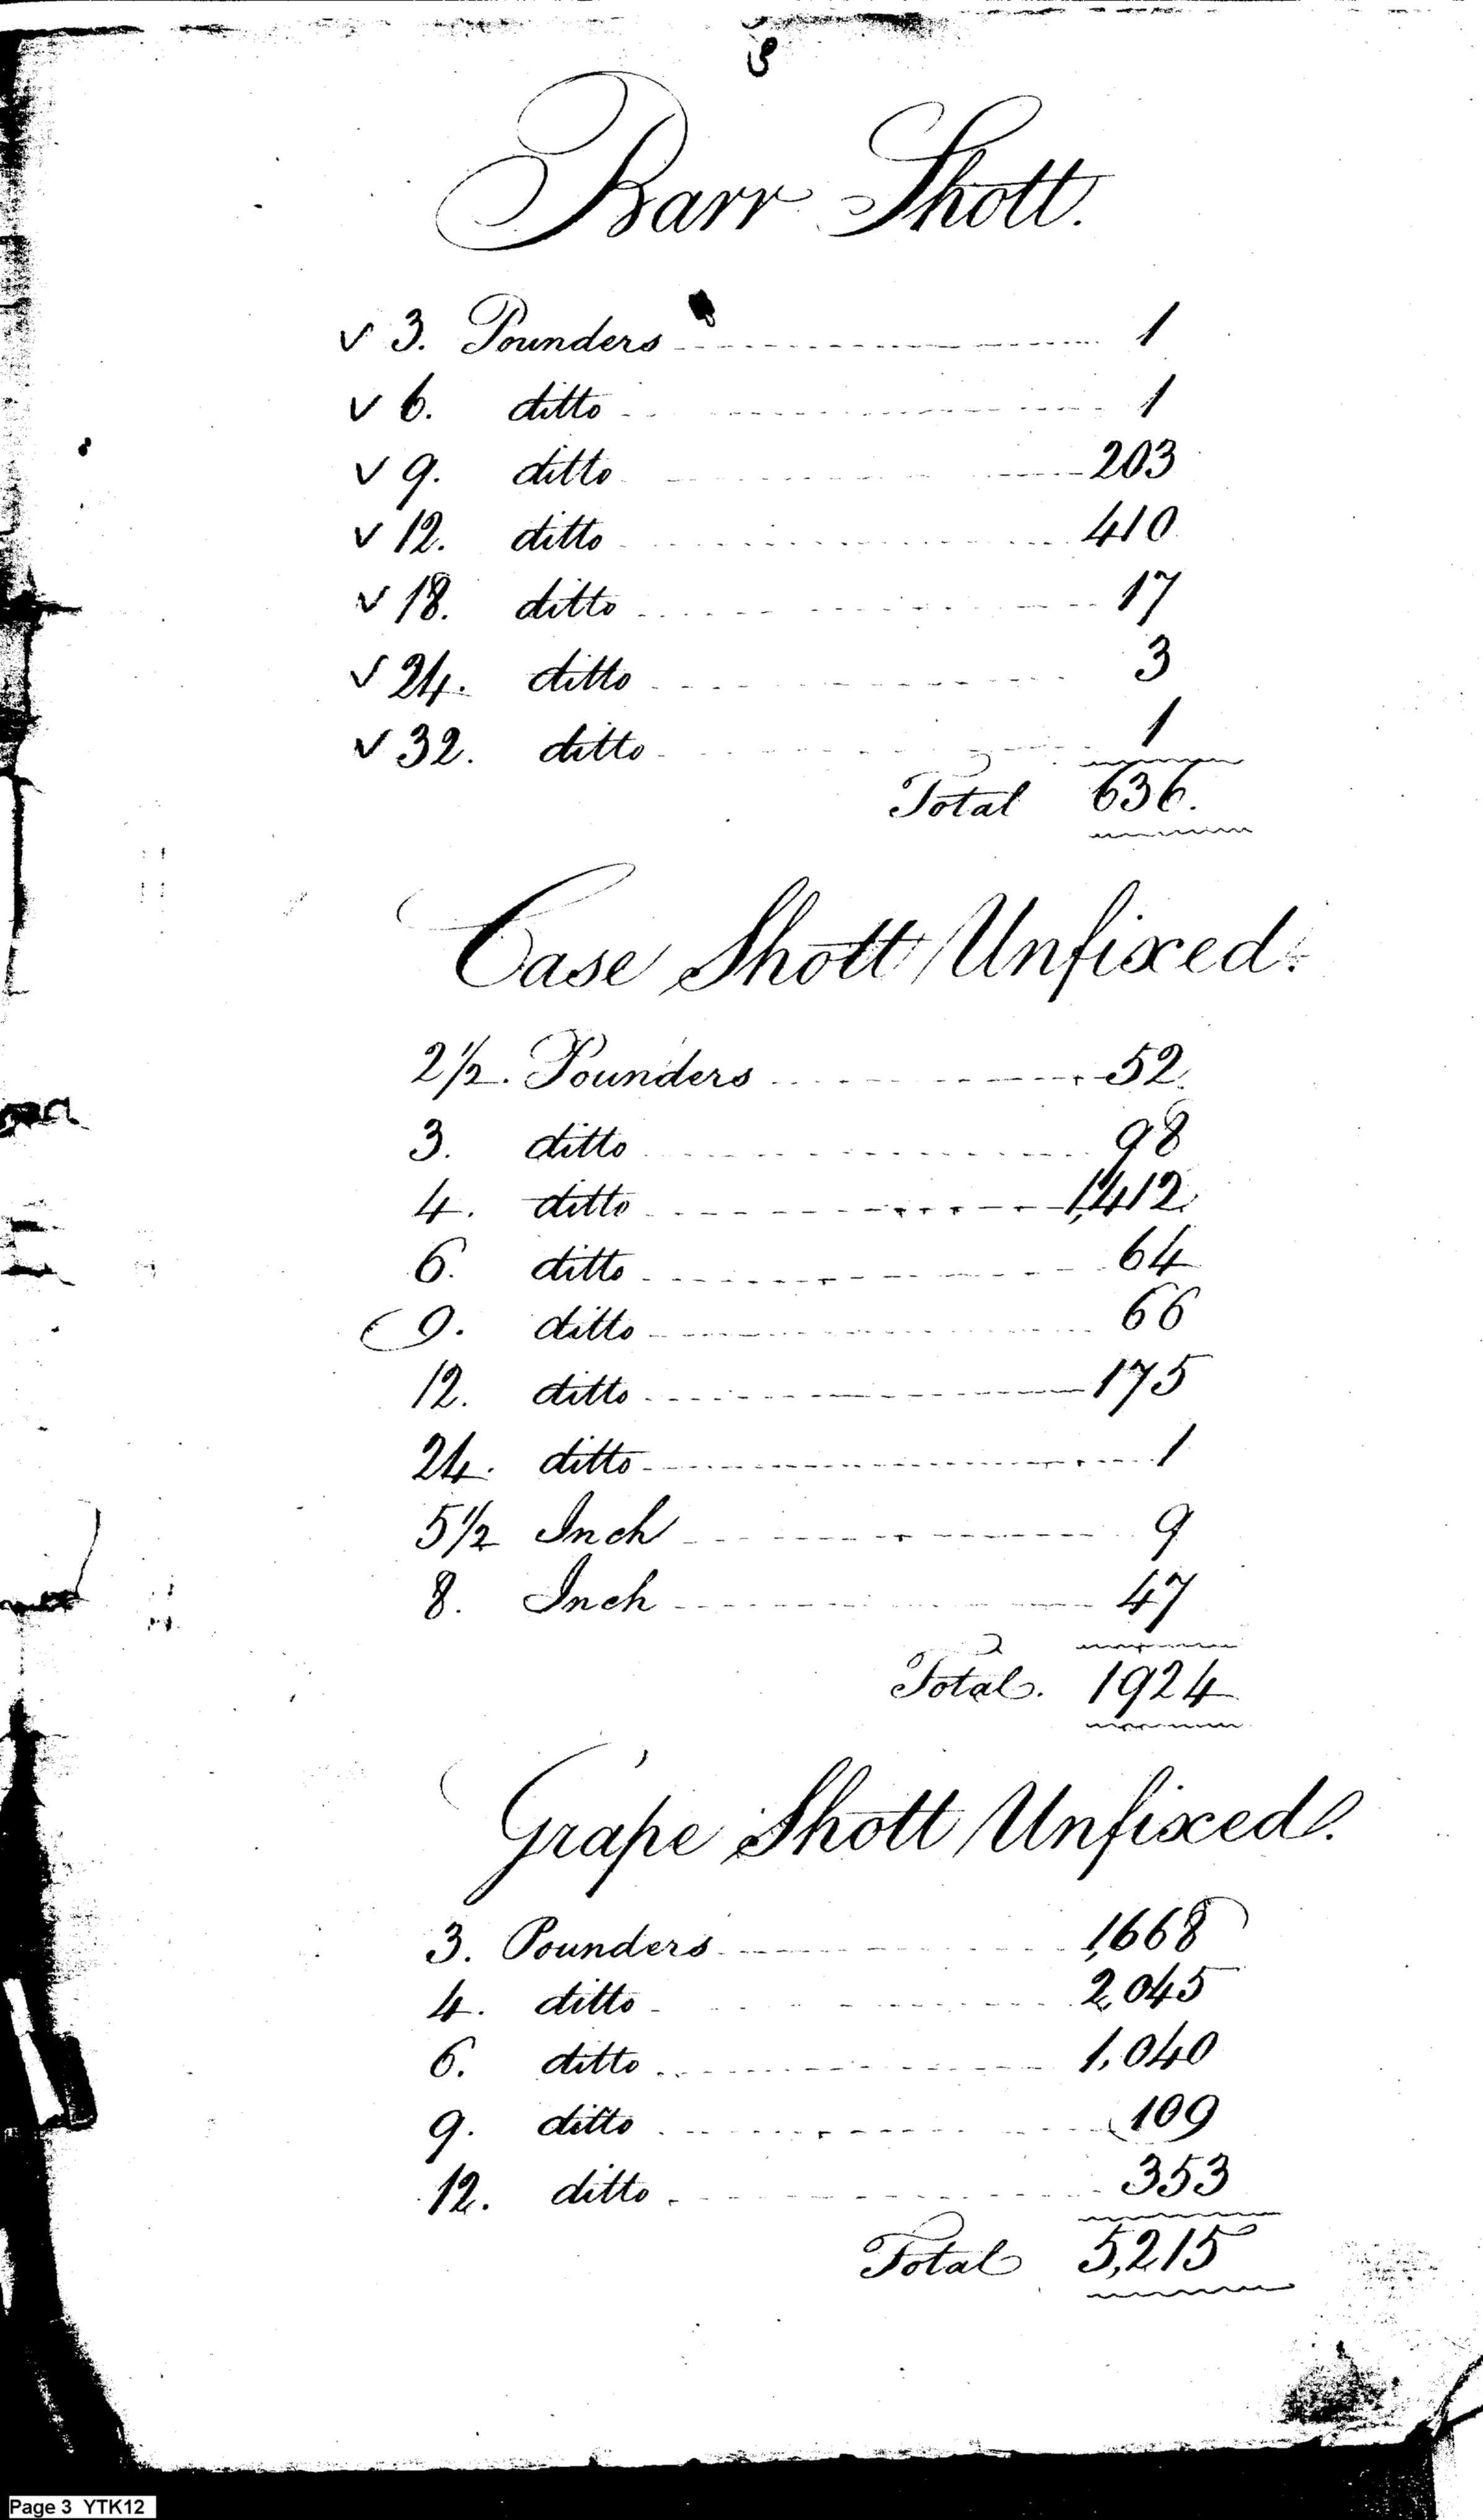 3
Barr Shott.
✓ 3. Pounders 1
✓ 6. ditto 1
✓ 9. ditto 203
✓ 12. ditto 410
✓ 18. ditto 17
✓ 24. ditto 3
✓ 32. ditto 1
Total 636.
Case Shott Unfixed.
2½. Pounders 52
3. ditto 98
4. ditto 1,412
6. ditto 64
9. ditto 66
12. ditto 175
24. ditto 1
5½ Inch 9
8. Inch 47
Total. 1924
Grape Shott Unfixed.
3. Pounders 1,668
4. ditto 2,045
6. ditto 1,040
9. ditto 109
12. ditto 353
Total 5,215
Page 3 YTK12